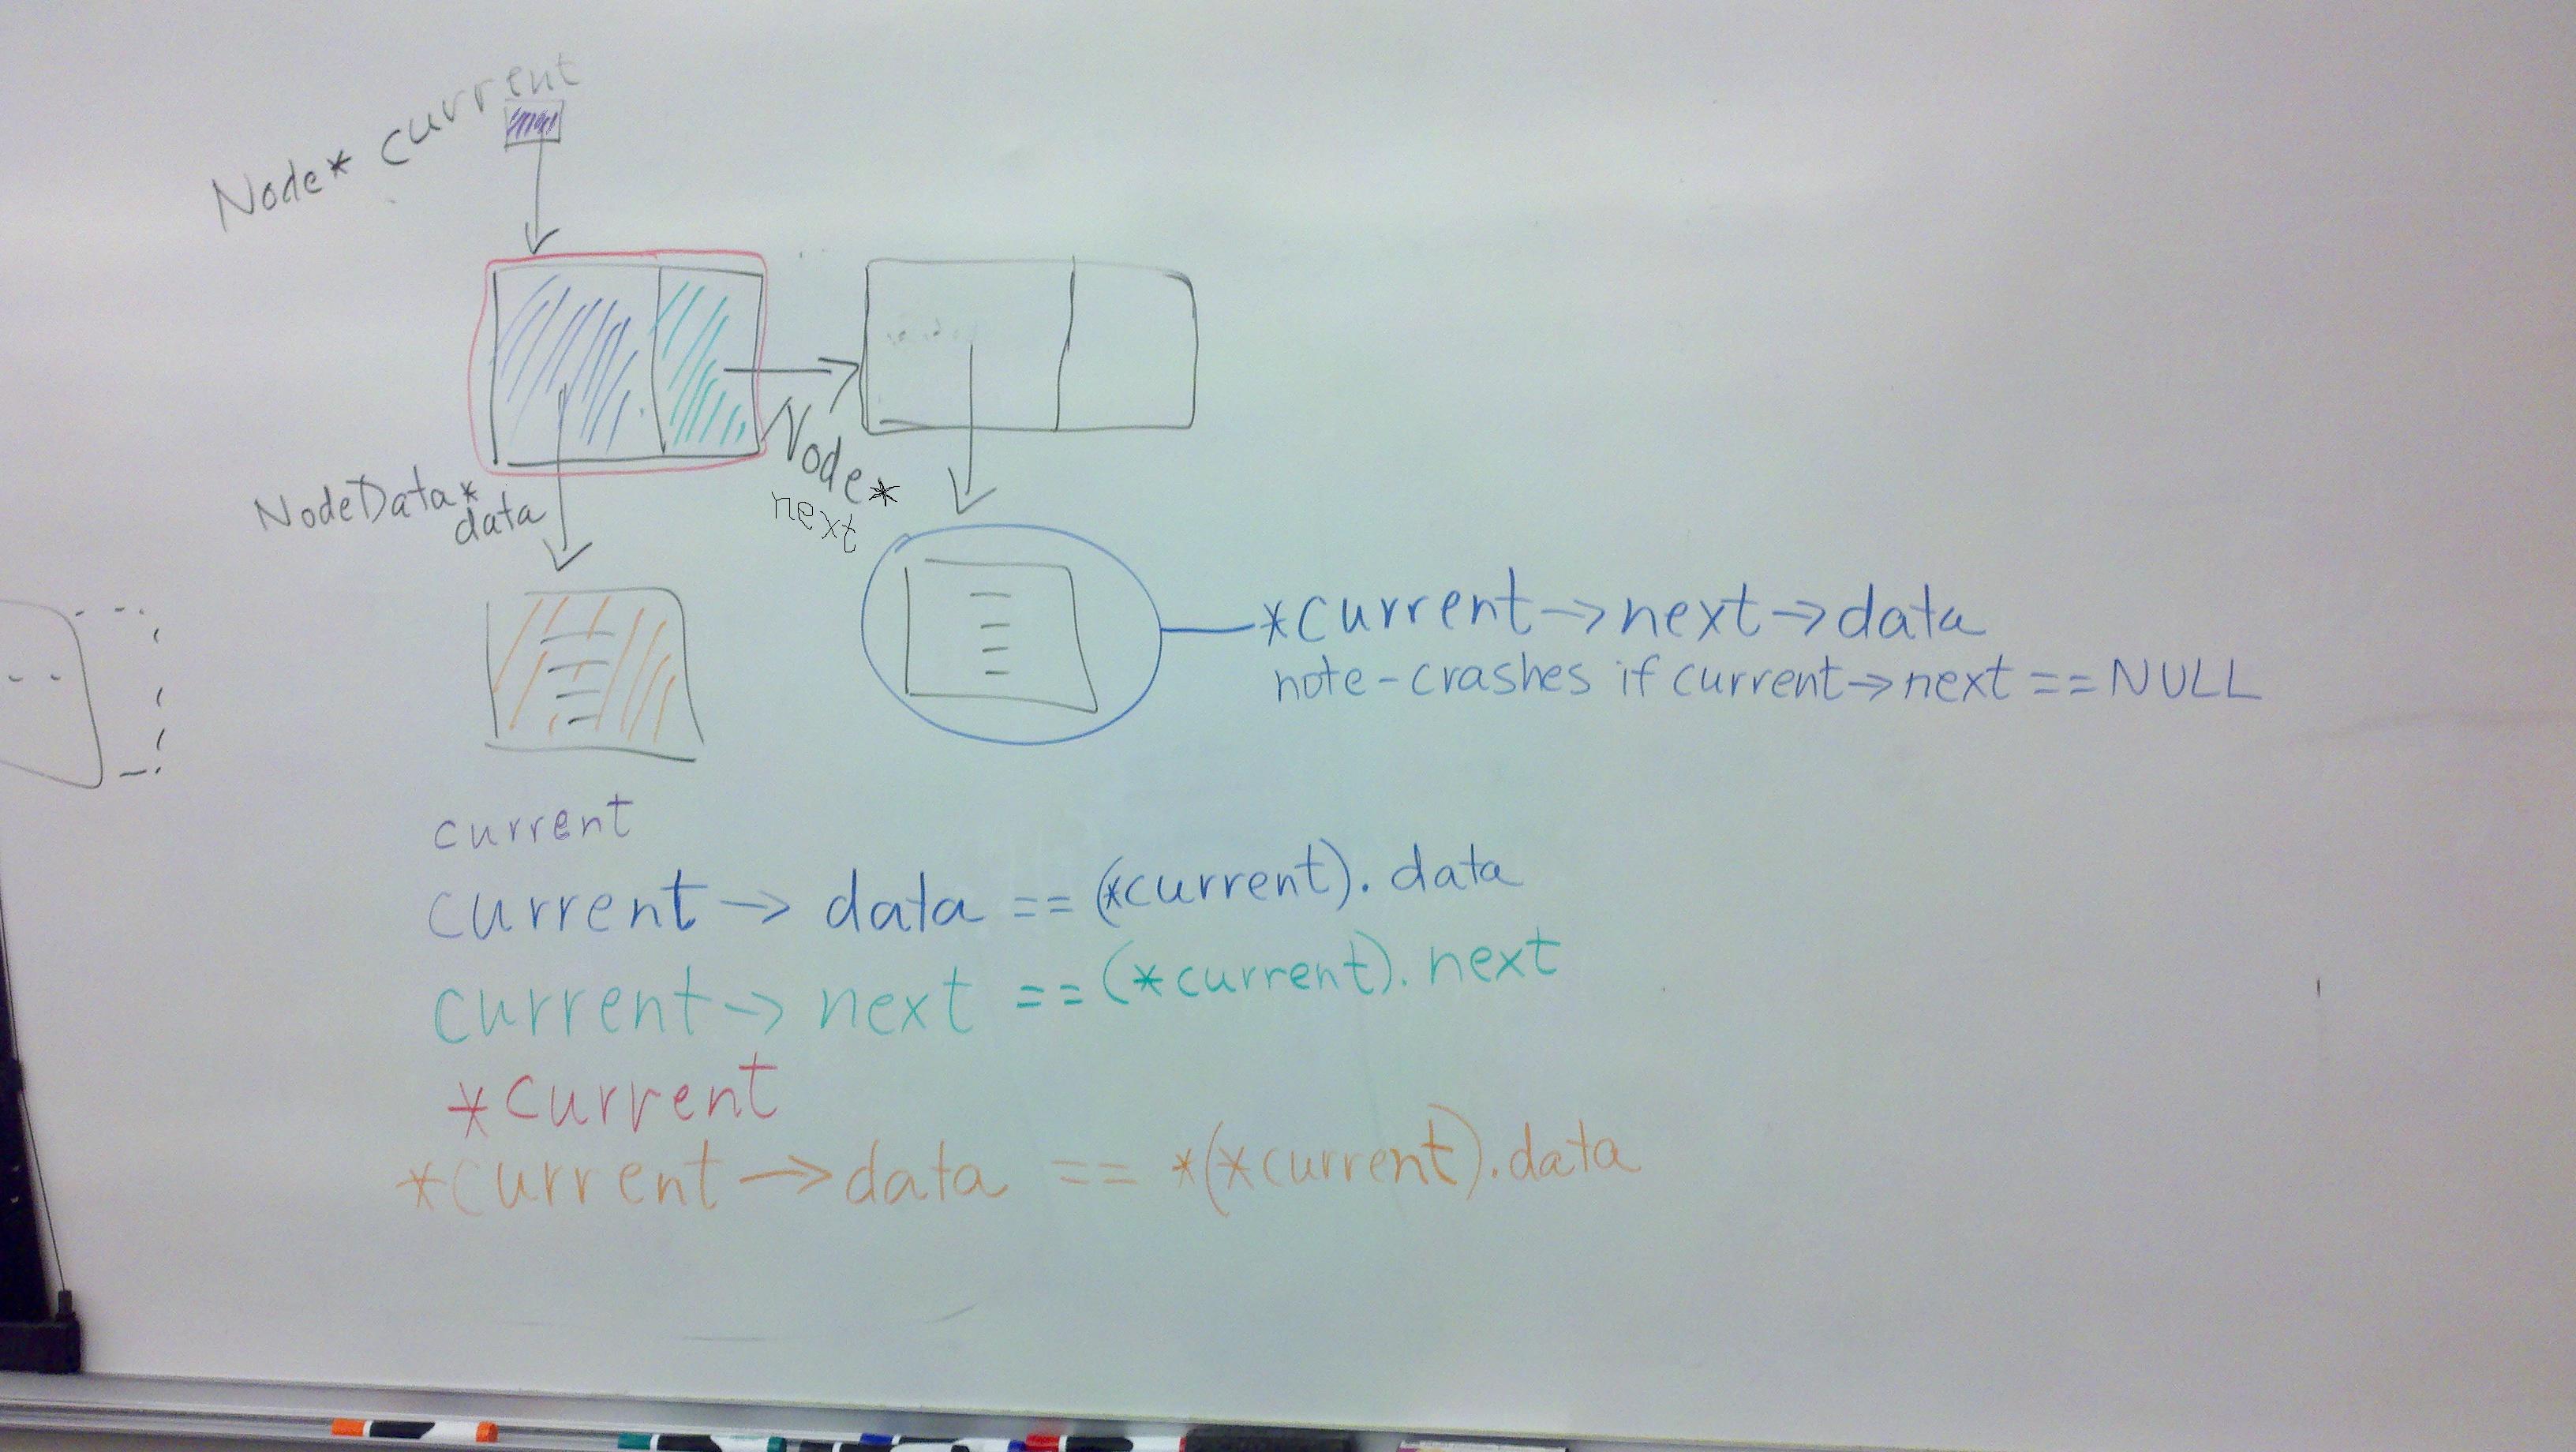 Node* current
NodeData*
data
Node*
next
*current→next→data
note-crashes if current→next == NULL
current
current → data == (*current). data
current → next == (*current). next
*current
*current → data == *(*current).data